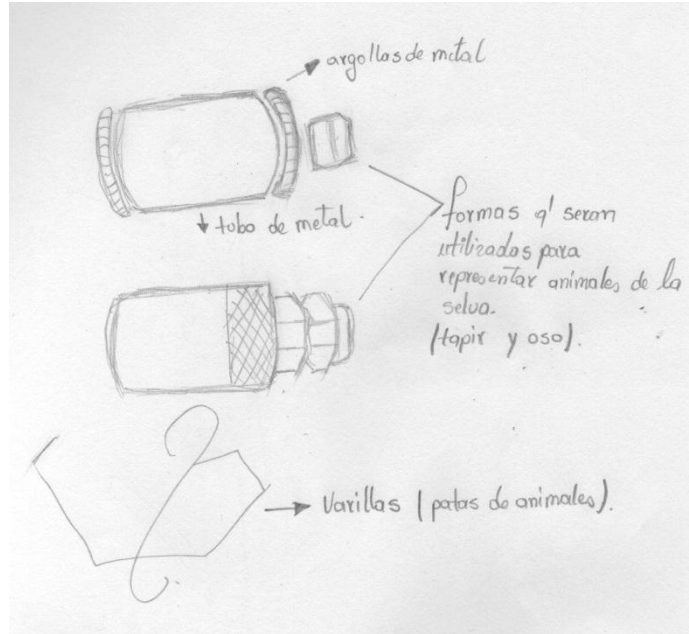 argollas de metal
tubo de metal.
formas q' seran
utilizadas para
representar animales de la
selva.
(tapir y oso).
Varillas (patas de animales).